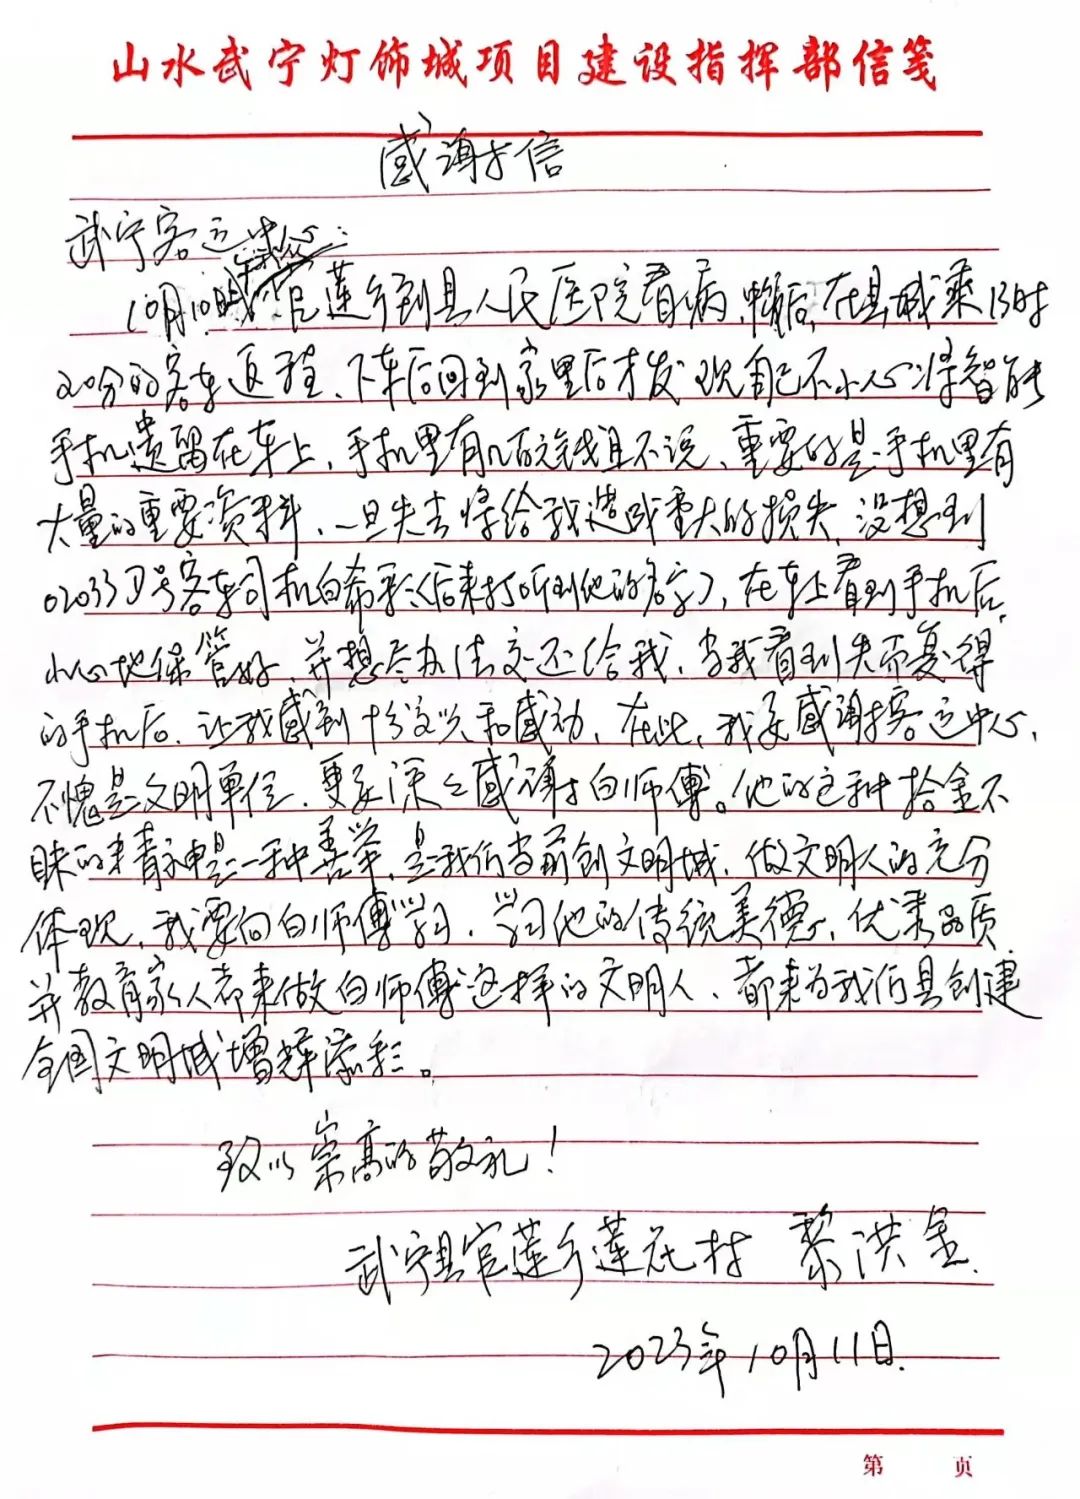 山水武宁灯饰城项目建设指挥部信笺
感谢信
武宁客运中心:
10月10日我从官莲乡到县人民医院看病,然后,在县城乘13时
20分的客车返程、下车后回到家里后才发现自己不小心将智能
手机遗留在车上,手机里有几百元钱且不说、重要的是手机里有
大量的重要资料、一旦失去将给我造成重大的损失,没想到
02033D号客车司机白希彩(后来打听到他的名字),在车上看到手机后,
小心地保管好、并想尽办法交还给我、当我看到失而复得
的手机后、让我感到十分高兴和感动、在此、我要感谢客运中心,
不愧是文明单位、更要深深感谢白师傅。他的这种拾金不
昧的精神是一种善举,是我们当前创文明城,做文明人的充分
体现,我要向白师傅学习,学习他的传统美德,优秀品质
并教育家人都来做白师傅这样的文明人、都来为我们县创建
全国文明城增辉添彩。
致以崇高的敬礼!
武宁县官莲乡莲花村 黎洪金.
2023年10月11日.
第 页